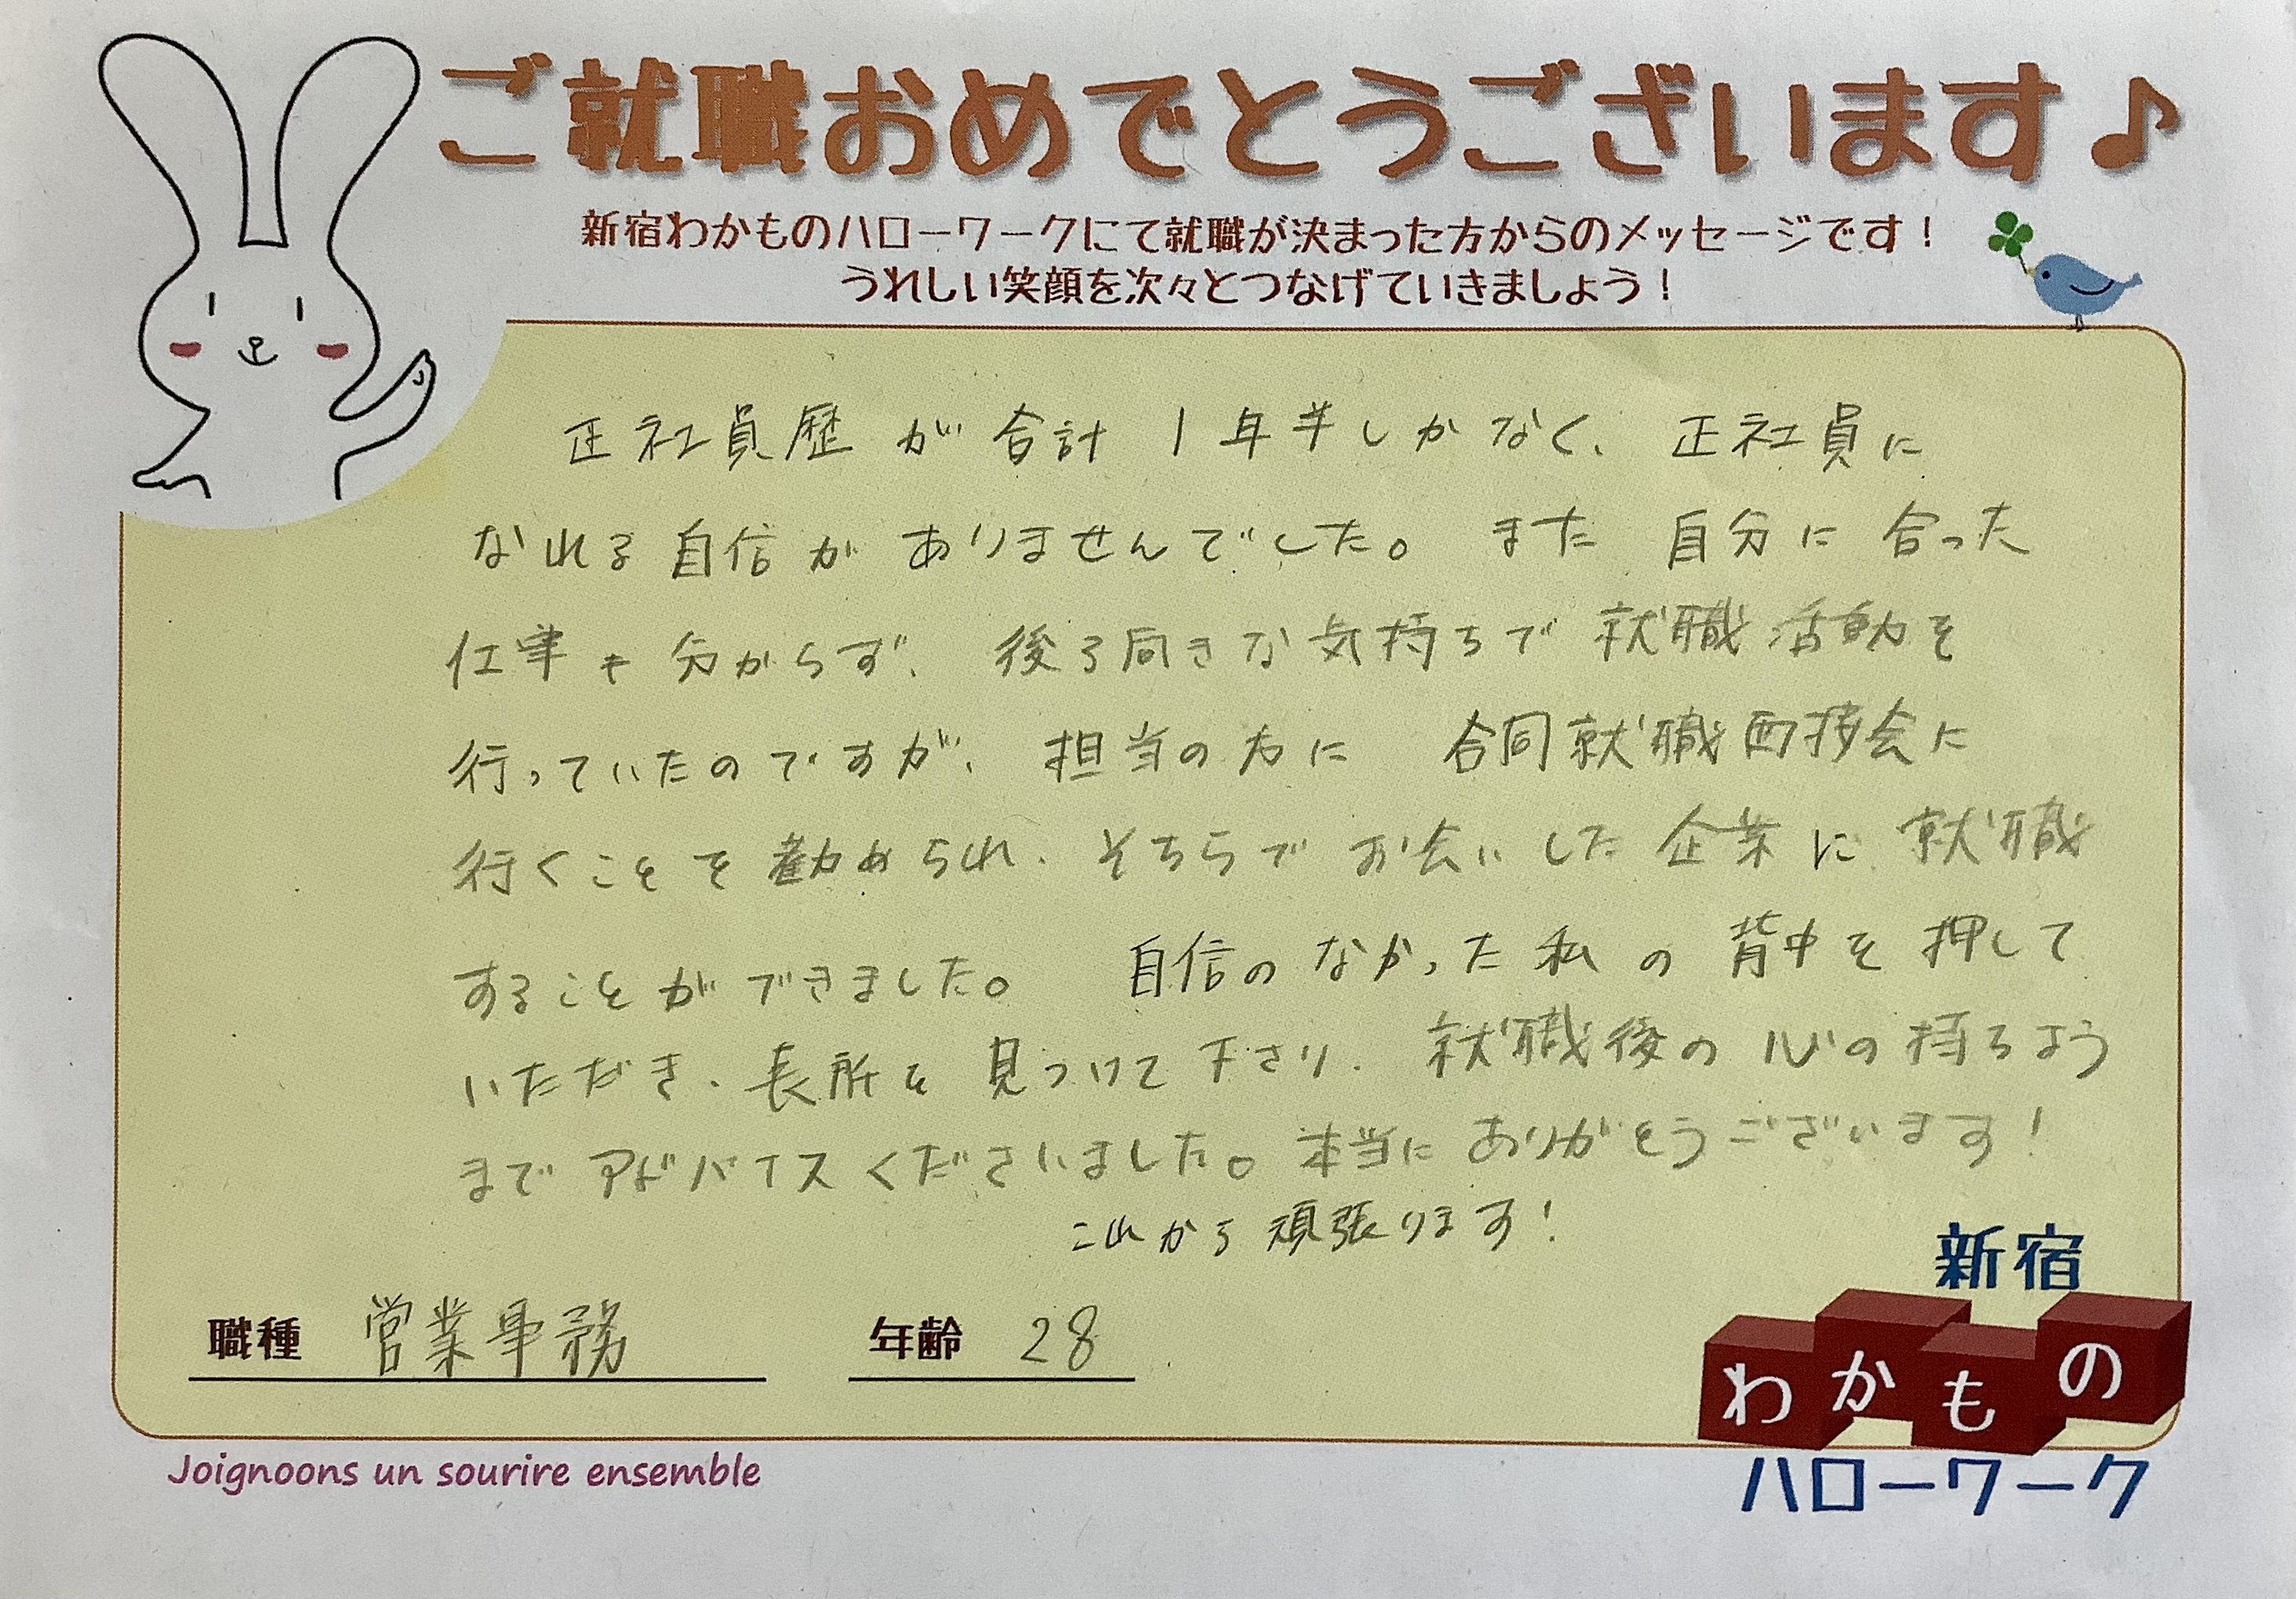 ご就職おめでとうございます♪
新宿わかものハローワークにて就職が決まった方からのメッセージです！
うれしい笑顔を次々とつなげていきましょう！
正社員歴が合計1年半しかなく、正社員に
なれる自信がありませんでした。また自分に合った
仕事も分からず、後ろ向きな気持ちで就職活動を
行っていたのですが、担当の方に合同就職面接会に
行くことを勧められ、そちらでお会いした企業に就職
することができました。自信のなかった私の背中を押して
いただき、長所を見つけて下さり、就職後の心の持ちよう
までアドバイスくださいました。本当にありがとうございます！
これから頑張ります！
職種 営業事務 年齢 28
新宿
わかもの
ハローワーク
Joignoons un sourire ensemble